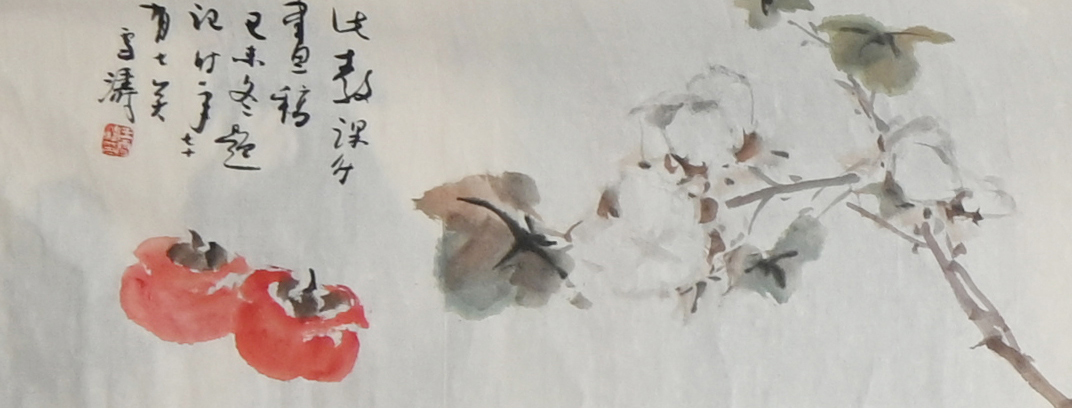 此教课份
画稿
己未冬题
记时年七十
有七矣
雪涛